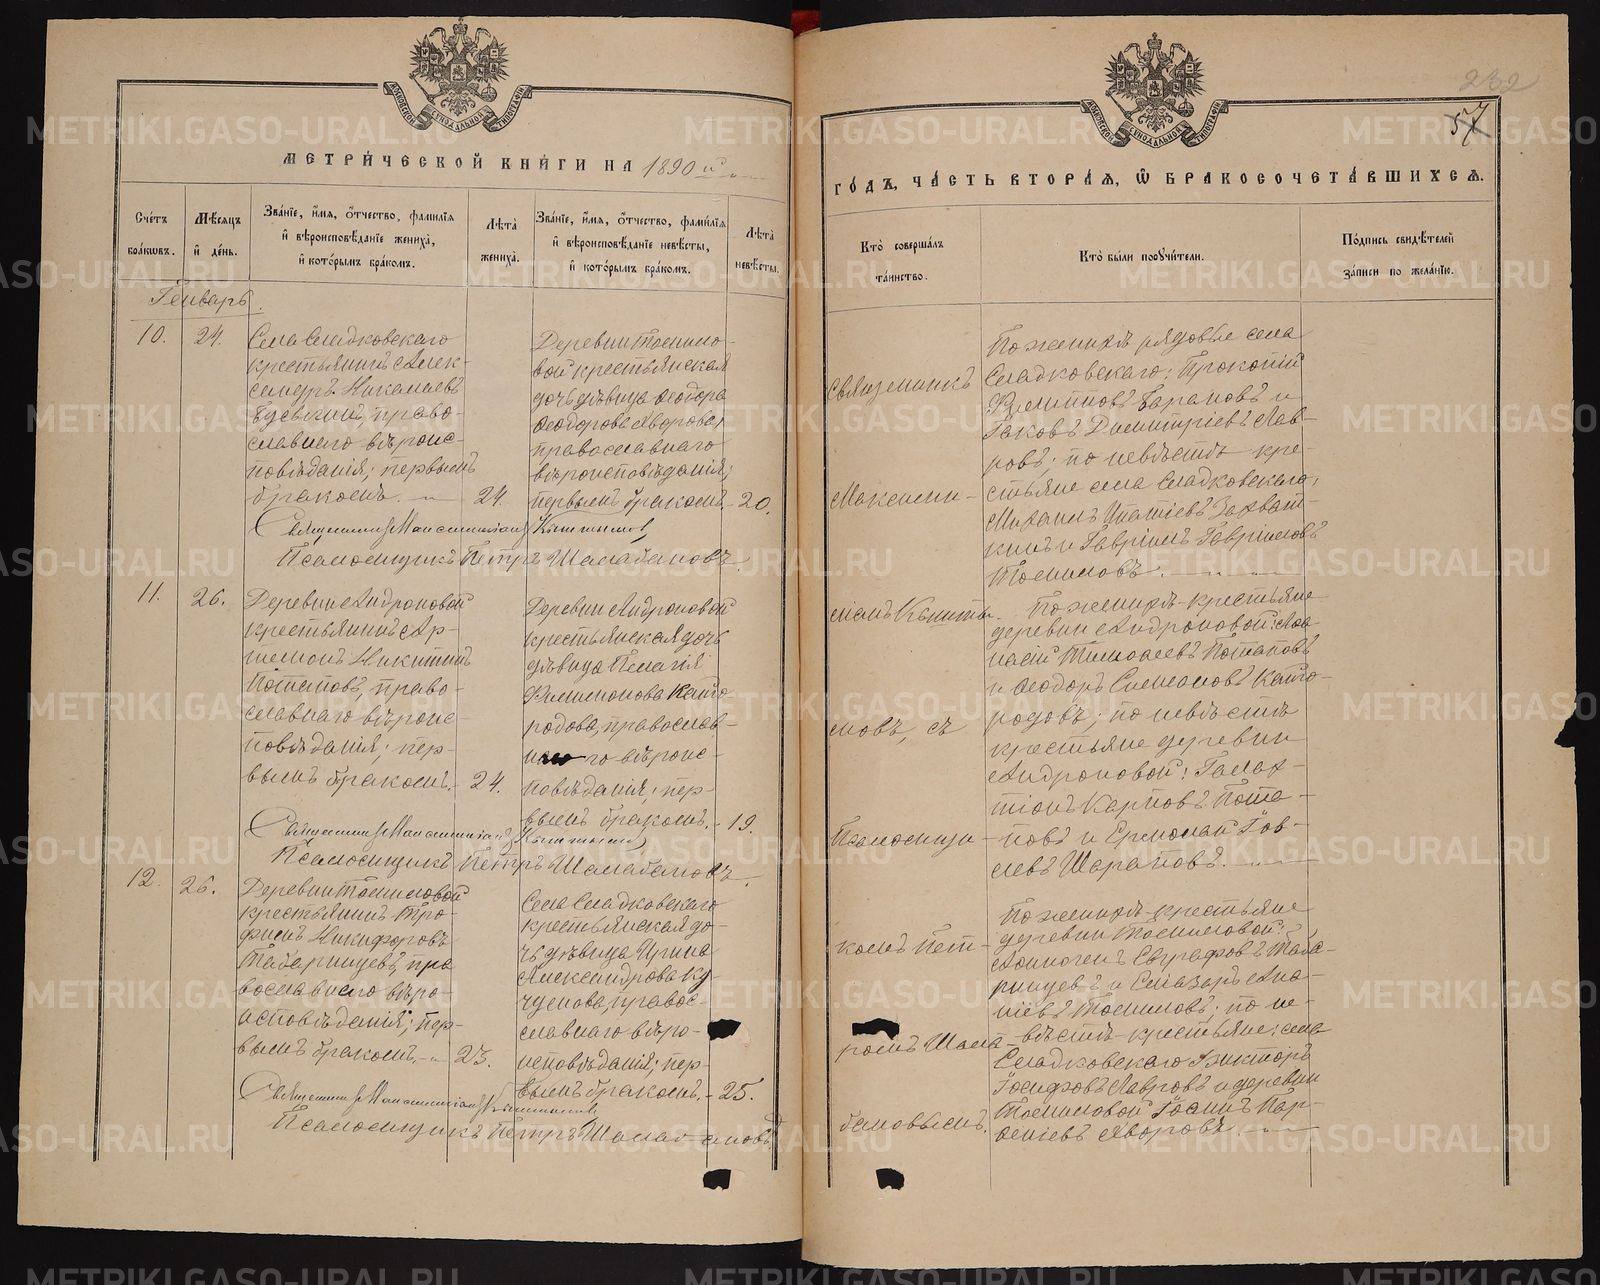 МЕТРИ́ЧЕСКОЙ КНИ́ГИ НА 1890 й
Сче́тъ бра́кѡвъ.
Мѣ́сяцъ и҆ де́нь.
Зва́нїе, и҆́мя, ѻ҆́тчество, фами́лїя и҆ вѣроисповѣ́данїе жениха̀, и҆ кото́рымъ бра́комъ.
Лѣта̀ жениха̀.
Зва́нїе, и҆́мя, ѻ҆́тчество, фами́лїя и҆ вѣроисповѣ́данїе невѣ́сты, и҆ кото́рымъ бра́комъ.
Лѣта̀ невѣ́сты.
Генварь.
10.
24.
Села Сладковскаго
крестьянинъ Алек-
сандръ Николаевъ
право-
славнаго вѣроис-
повѣданія; первымъ
бракомъ.
24.
Деревни Томило-
вой крестьянская
дочь дѣвица Ѳеодора
Ѳеодорова Яворова,
православнаго
вѣроисповѣданія;
первымъ бракомъ.
20.
Священникъ Максимиліанъ
Псаломщикъ Петръ Шалабановъ.
11.
26.
Деревни Андроновой
крестьянинъ Ар-
темонъ Никитинъ
Потаповъ, право-
славнаго вѣроис-
повѣданія; пер-
вымъ бракомъ.
24.
Деревни Андроновой
крестьянская дочь
дѣвица Пелагія
Филимонова Кайго-
родова, православ-
наго вѣроис-
повѣданія; пер-
вымъ бракомъ.
19.
Священникъ Максимиліанъ
Псаломщикъ Петръ Шалабановъ.
12.
26.
Деревни Томиловой
крестьянинъ Тро-
фимъ Никифоровъ
Табаринцевъ, пра-
вославнаго вѣро-
исповѣданія; пер-
вымъ бракомъ.
23.
Села Сладковскаго
крестьянская до-
чь дѣвица Ирина
Александрова
правос-
славнаго вѣро-
исповѣданія; пер-
вымъ бракомъ.
25.
Священникъ Максимиліанъ
Псаломщикъ Петръ Шалабановъ
232
57
ГО́ДЪ, ЧА́СТЬ ВТОРА́Я, Ѡ҆ БРАКОСОЧЕТА́ВШИХСЯ.
Кто̀ соверша́лъ та́инство.
Кто̀ бы́ли порꙋчи́тели.
По́дпись свидѣ́телей за́писи по жела́нїю.
Священникъ
Максими-
ліанъ
новъ, съ
Псаломщи-
комъ Пет-
ромъ Шала-
бановымъ.
По женихѣ рядовые села
Сладковскаго: Прокопій
Филиповъ Барановъ и
Іаковъ Димитріевъ Лав-
ровъ; по невѣстѣ кре-
стьяне села Сладковскаго;
Михаилъ Игнатіевъ Захват-
кинъ и Гавріилъ Гавріиловъ
Томиловъ.
По женихѣ крестьяне
деревни Андроновой: Аѳа-
насій Тимоѳеевъ Потаповъ
и Ѳеодоръ Симеоновъ Кайго-
родовъ; по невѣстѣ
крестьяне деревни
Андроновой: Галак-
тіонъ Карповъ Пота-
повъ и Ермолай Іов-
левъ Шараповъ.
По женихѣ крестьяне
деревни Томиловой:
Аѳиногенъ Евграфовъ Таба-
ринцевъ и Елеазаръ Ана-
ніевъ Томиловъ; по не-
вѣстѣ крестьяне: села
Сладковскаго Викторъ
Іосифовъ Лавровъ и деревни
Томиловой Іоаннъ Пар-
ѳеніевъ Яворовъ.
METRIKI.GASO-URAL.RU